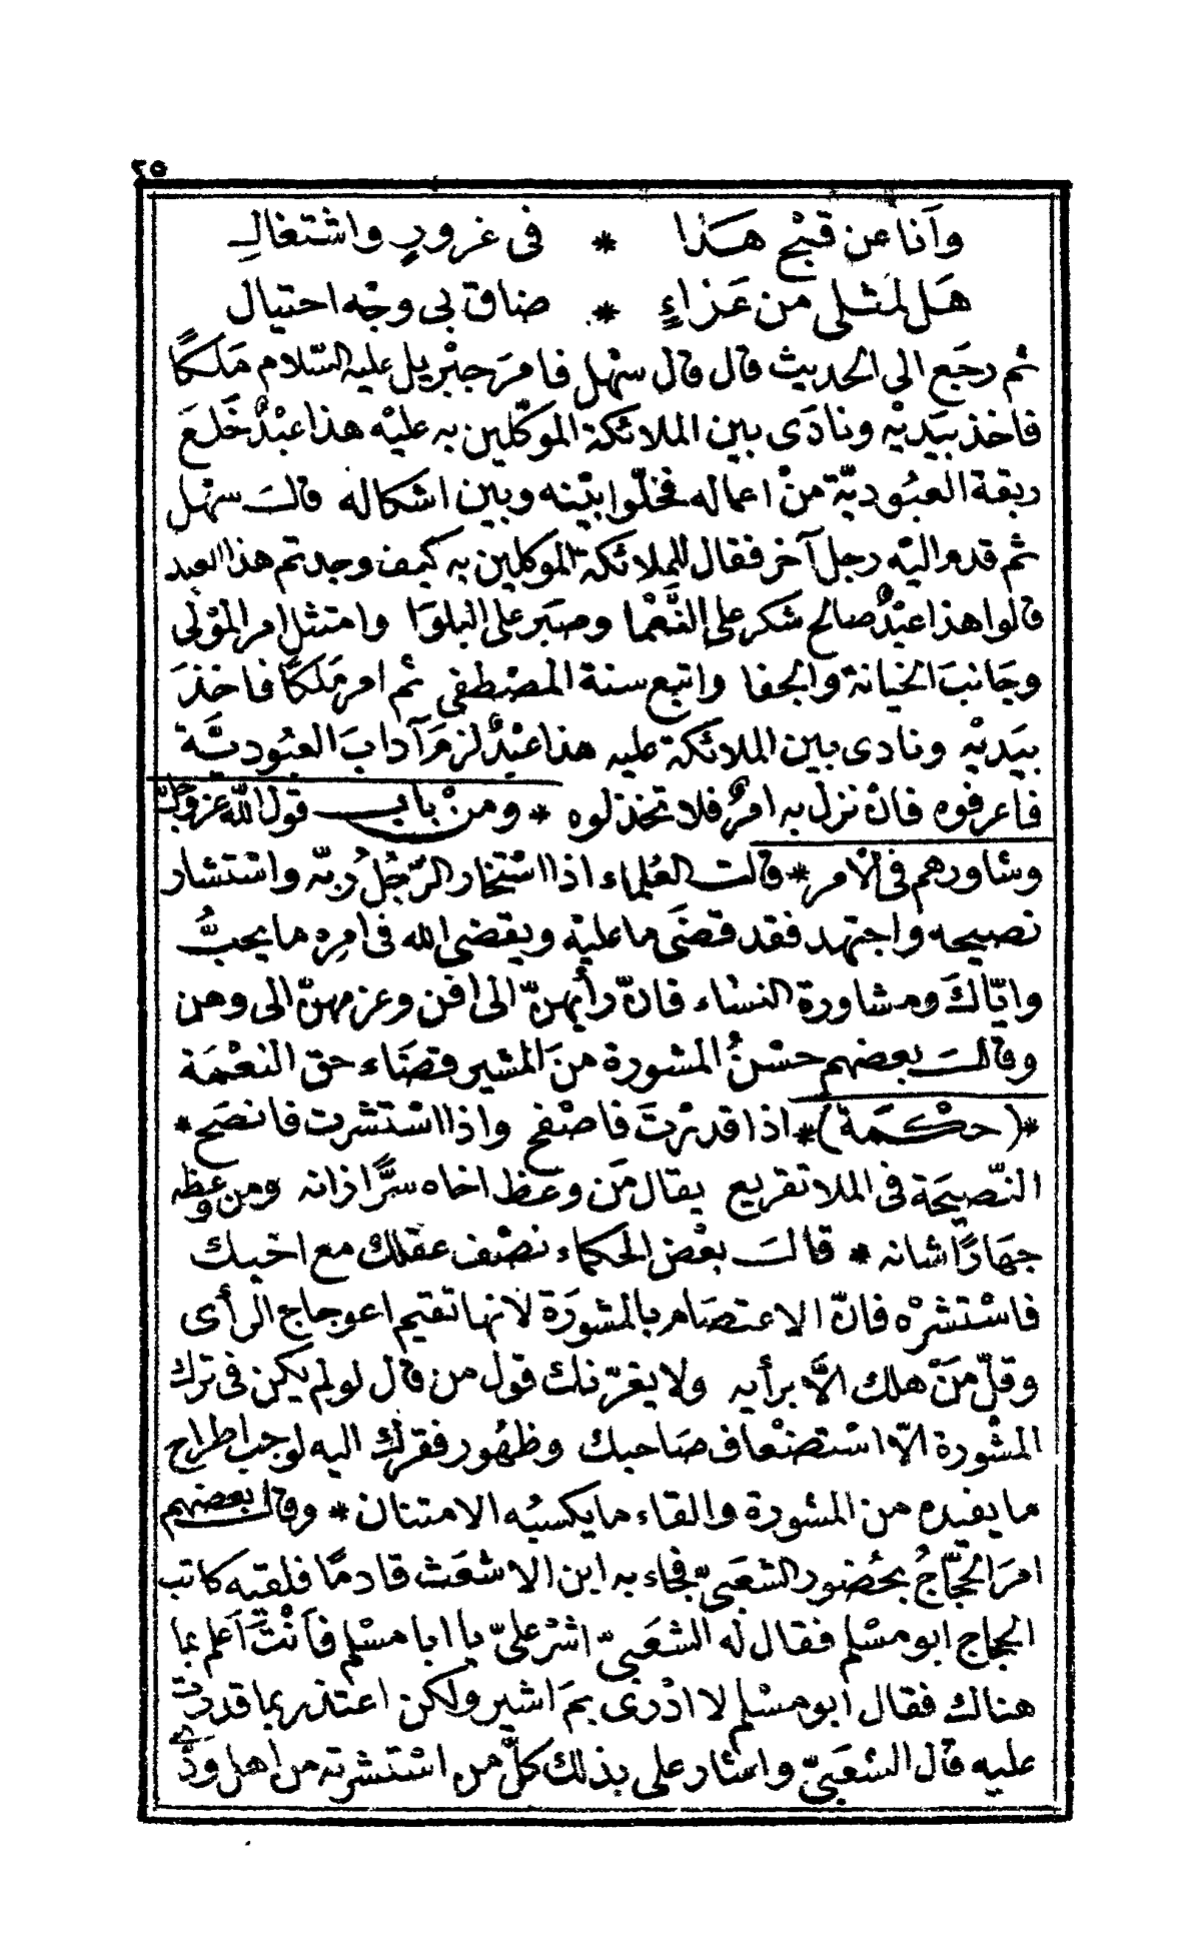 ٢٥
وَأنا عن قبْح هَذا * فى غرورٍ واشتغالِ
هَل لمثلى من عَزاءٍ * ضاق بى وجْه احتيال
ثم رجَع الى الحديث قال قال سهْل فامرَ جبْريل عليه السّلام مَلَكاً
فاخذ بيَديْه ونادَى بين الملائكة الموكّلين به عليْه هذا عبْدٌ خَلعَ
ربقة العبُوديّة منْ اعماله فخلّوا بيْنه وبين اشكاله قالَ سهْل
ثم قدم اليْه رجل آخر فقال للملائكة الموكلين به كيف وجدتم هذا العبد
قالوا هذا عبْدٌ صالح شكر على النَّعْما وصبَر على البلوَا وامتثل امر المَوْلى
وجَانبَ الخيانة والجفا واتبع سنة المصْطفى ثم امر مَلكاً فاخذَ
بيَديْه ونادى بين الملائكة عليه هذا عبْدٌ لزمَ آدابَ العبُوديَّة
فاعرفوه فانْ نزل به امرٌ فلا تخذلوه * ومنْ باب قول الله عزّ وجلّ
وشاورهم فى الأمر * قالت العُلماء اذا اسْتخار الرّجُلُ ربّه واسْتشار
نصيحه واجتهد فقد قضَى ما عليْه ويقضى الله فى امرِه ما يحبُّ
وايّاكَ ومشاورة النسْاء فانّ رأيهنّ الى افن وعزمهنّ الى وهن
وقالَ بعضهم حسْنُ المشورة منَ المشير قضَاء حق النعْمَة
*(حكْمَة)* اذا قدرْتَ فاصْفح واذا اسْتشرت فانصَح *
النّصيحَة فى الملا تقريع يقال مَن وعظ اخاه سرًّا زانه ومن وعظه
جهَارًا شانه * قالَ بعْض الحكماء نصْف عقلك مع اخيك
فاسْتشرْه فانّ الاعتصَام بالمشورَة لانها تقيم اعوجاج الرأى
وقلّ مَنْ هلك الاَّ برأيه ولا يغرّنك قول من قال لو لم يكن فى ترك
المشْورة الاّ اسْتضعْاف صَاحبك وظهُور فقرك اليه لوجب اطراح
ما يفيده من المشورة والقاء ما يكسبُه الامتنان * وقالَ بعضهم
امرَ الحجّاجُ بحُضور الشعَبىّ فجاء به ابن الاشعَث قادمًا فلقيه كاتب
الحجاج ابو مسْلم فقال له الشعَبىّ اشرْ علىّ يا ابا مسْلم فأنْتَ أعلم بما
هناك فقال ابو مسْلم لا ادْرى بمَ اشير ولكن اعتذر بما قدرت
عليه قال الشعَبىّ واشار على بذلك كلّ من اسْتشرته من اهل ودّى